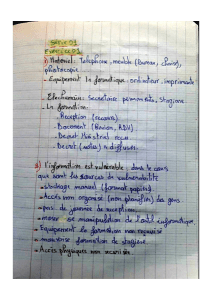 Série 01
Exercice 01
1) Matériel: Téléphone, meuble (Bureau, chaise),
photocopie
- Equipement la formatique: ordinateur, imprimante
- Secrétaire permanente, Stagiaire
- La formation:
- Reception (
- Document (
- Decret Ministre
- Decret (notes) à diffuser
2) l'information est vulnérable, dans le cours
que sont les sources de vulnérabilité
- stockage manuel (format papiers)
- Accès non organisé (non planifier) des gens
- pas de journée de réception
- manipulation de l'outil informatique
- Equipement la formation non organisé
- mauvaise formation de stagiaire
- Accès physiques non